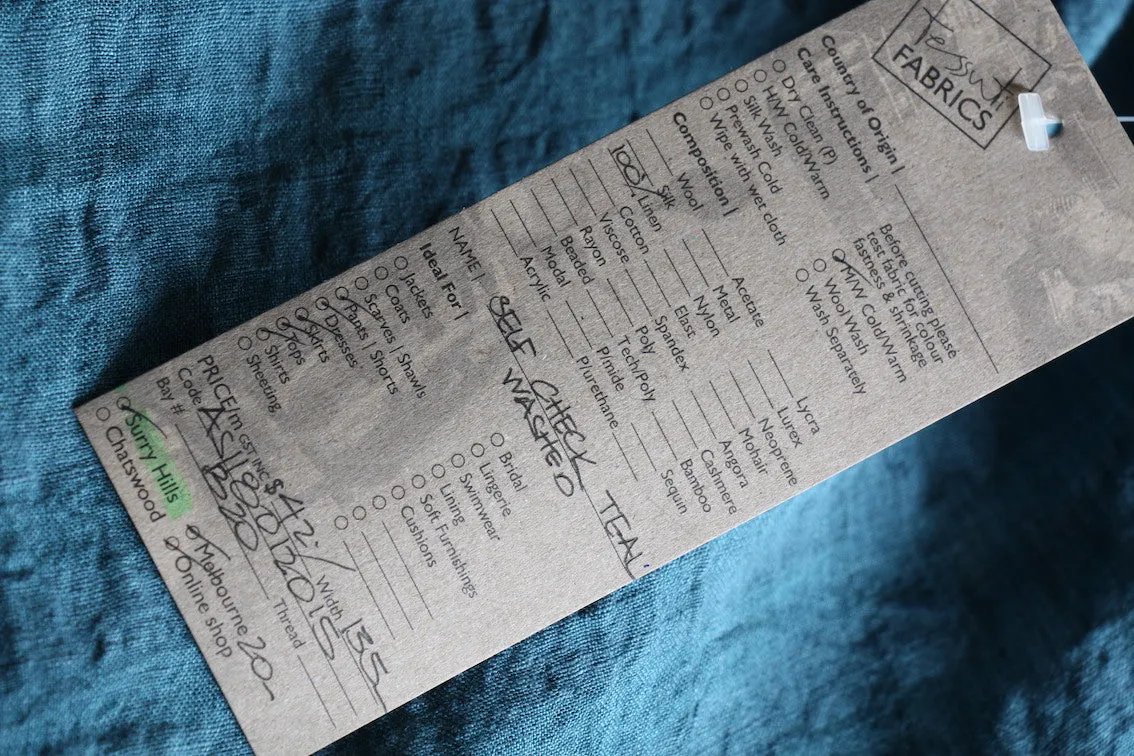 Tessuti
FABRICS
Country of Origin |
Care Instructions |
Dry Clean (P)
H/W Cold/Warm
Silk Wash
Prewash Cold
Wipe with wet cloth
Before cutting please
test fabric for colour
fastness & shrinkage
M/W Cold/Warm
Wool Wash
Wash Separately
Composition |
Wool
Silk
100% Linen
Cotton
Viscose
Rayon
Beaded
Modal
Acrylic
Acetate
Metal
Nylon
Elast
Spandex
Poly
Tech/Poly
P/mide
P/urethane
Lycra
Lurex
Neoprene
Mohair
Angora
Cashmere
Bamboo
Sequin
NAME | SELF CHECK TEAL
WASHED
Ideal For |
Jackets
Coats
Scarves | Shawls
Pants | Shorts
Dresses
Skirts
Tops
Shirts
Sheeting
Bridal
Lingerie
Swimwear
Lining
Soft Furnishings
Cushions
PRICE/m GST INC $42./ Width 135
Code
Bay # B20
Thread
Surry Hills
Chatswood
Melbourne 20
Online shop